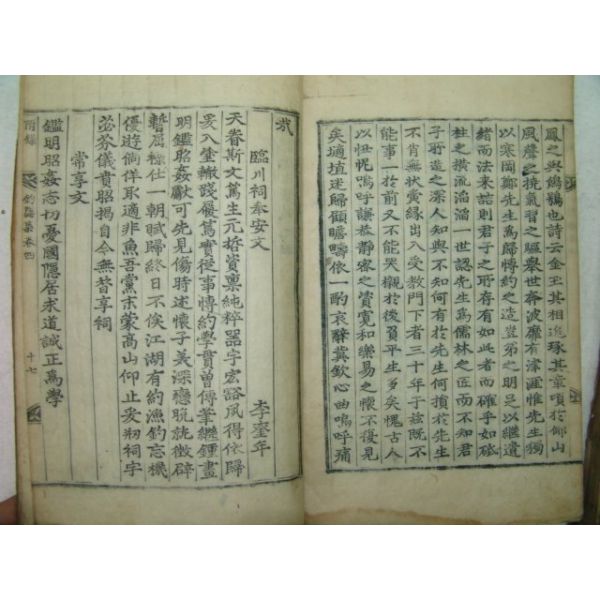 鳳之與鵷鶵也詩云金玉其相追琢其章頌於仰山
風聲之撓氣習之驅擧世奔波靡有津涯惟先生獨
以寒岡鄭先生爲歸博約之造豈弟之明足以繼遺
緖而法來則君子之所存有如此者而確乎如砥
柱之橫流滔滔一世認先生爲儒林之匠而不知君
子所造之深人知與不知何有於先生何損於先生
不肖無狀寅緣出入受教門下者三十年于玆旣不
能事一於前又不能哭於後負平生多矣愧古人
以忸怩嗚呼謙恭靜密之資寬和樂易之懷不復見
矣擿埴迷歸顧瞻疇依一酌哀辭冀歆心曲嗚呼痛
哉
臨川祠奉安文 李奎年
天眷斯文篤生元哲資稟純粹器宇宏豁風得依歸
爰入堂轍踐履篤實從事博約學貫曾傳筆繼鍾畫
明鑑昭姦猷可先見傷時述懷子美深癮晩就徵辟
暫屈縣仕一朝賦歸終日不俟江湖有約漁釣忘機
優遊徜徉取適非魚吾黨末蒙高山仰止爰刱祠宇
苾芬儀賁昭揭自今無替享祠
常享文
鑑明昭姦志切憂國隱居求道誠正爲學
附錄 釣隱集卷四 十七